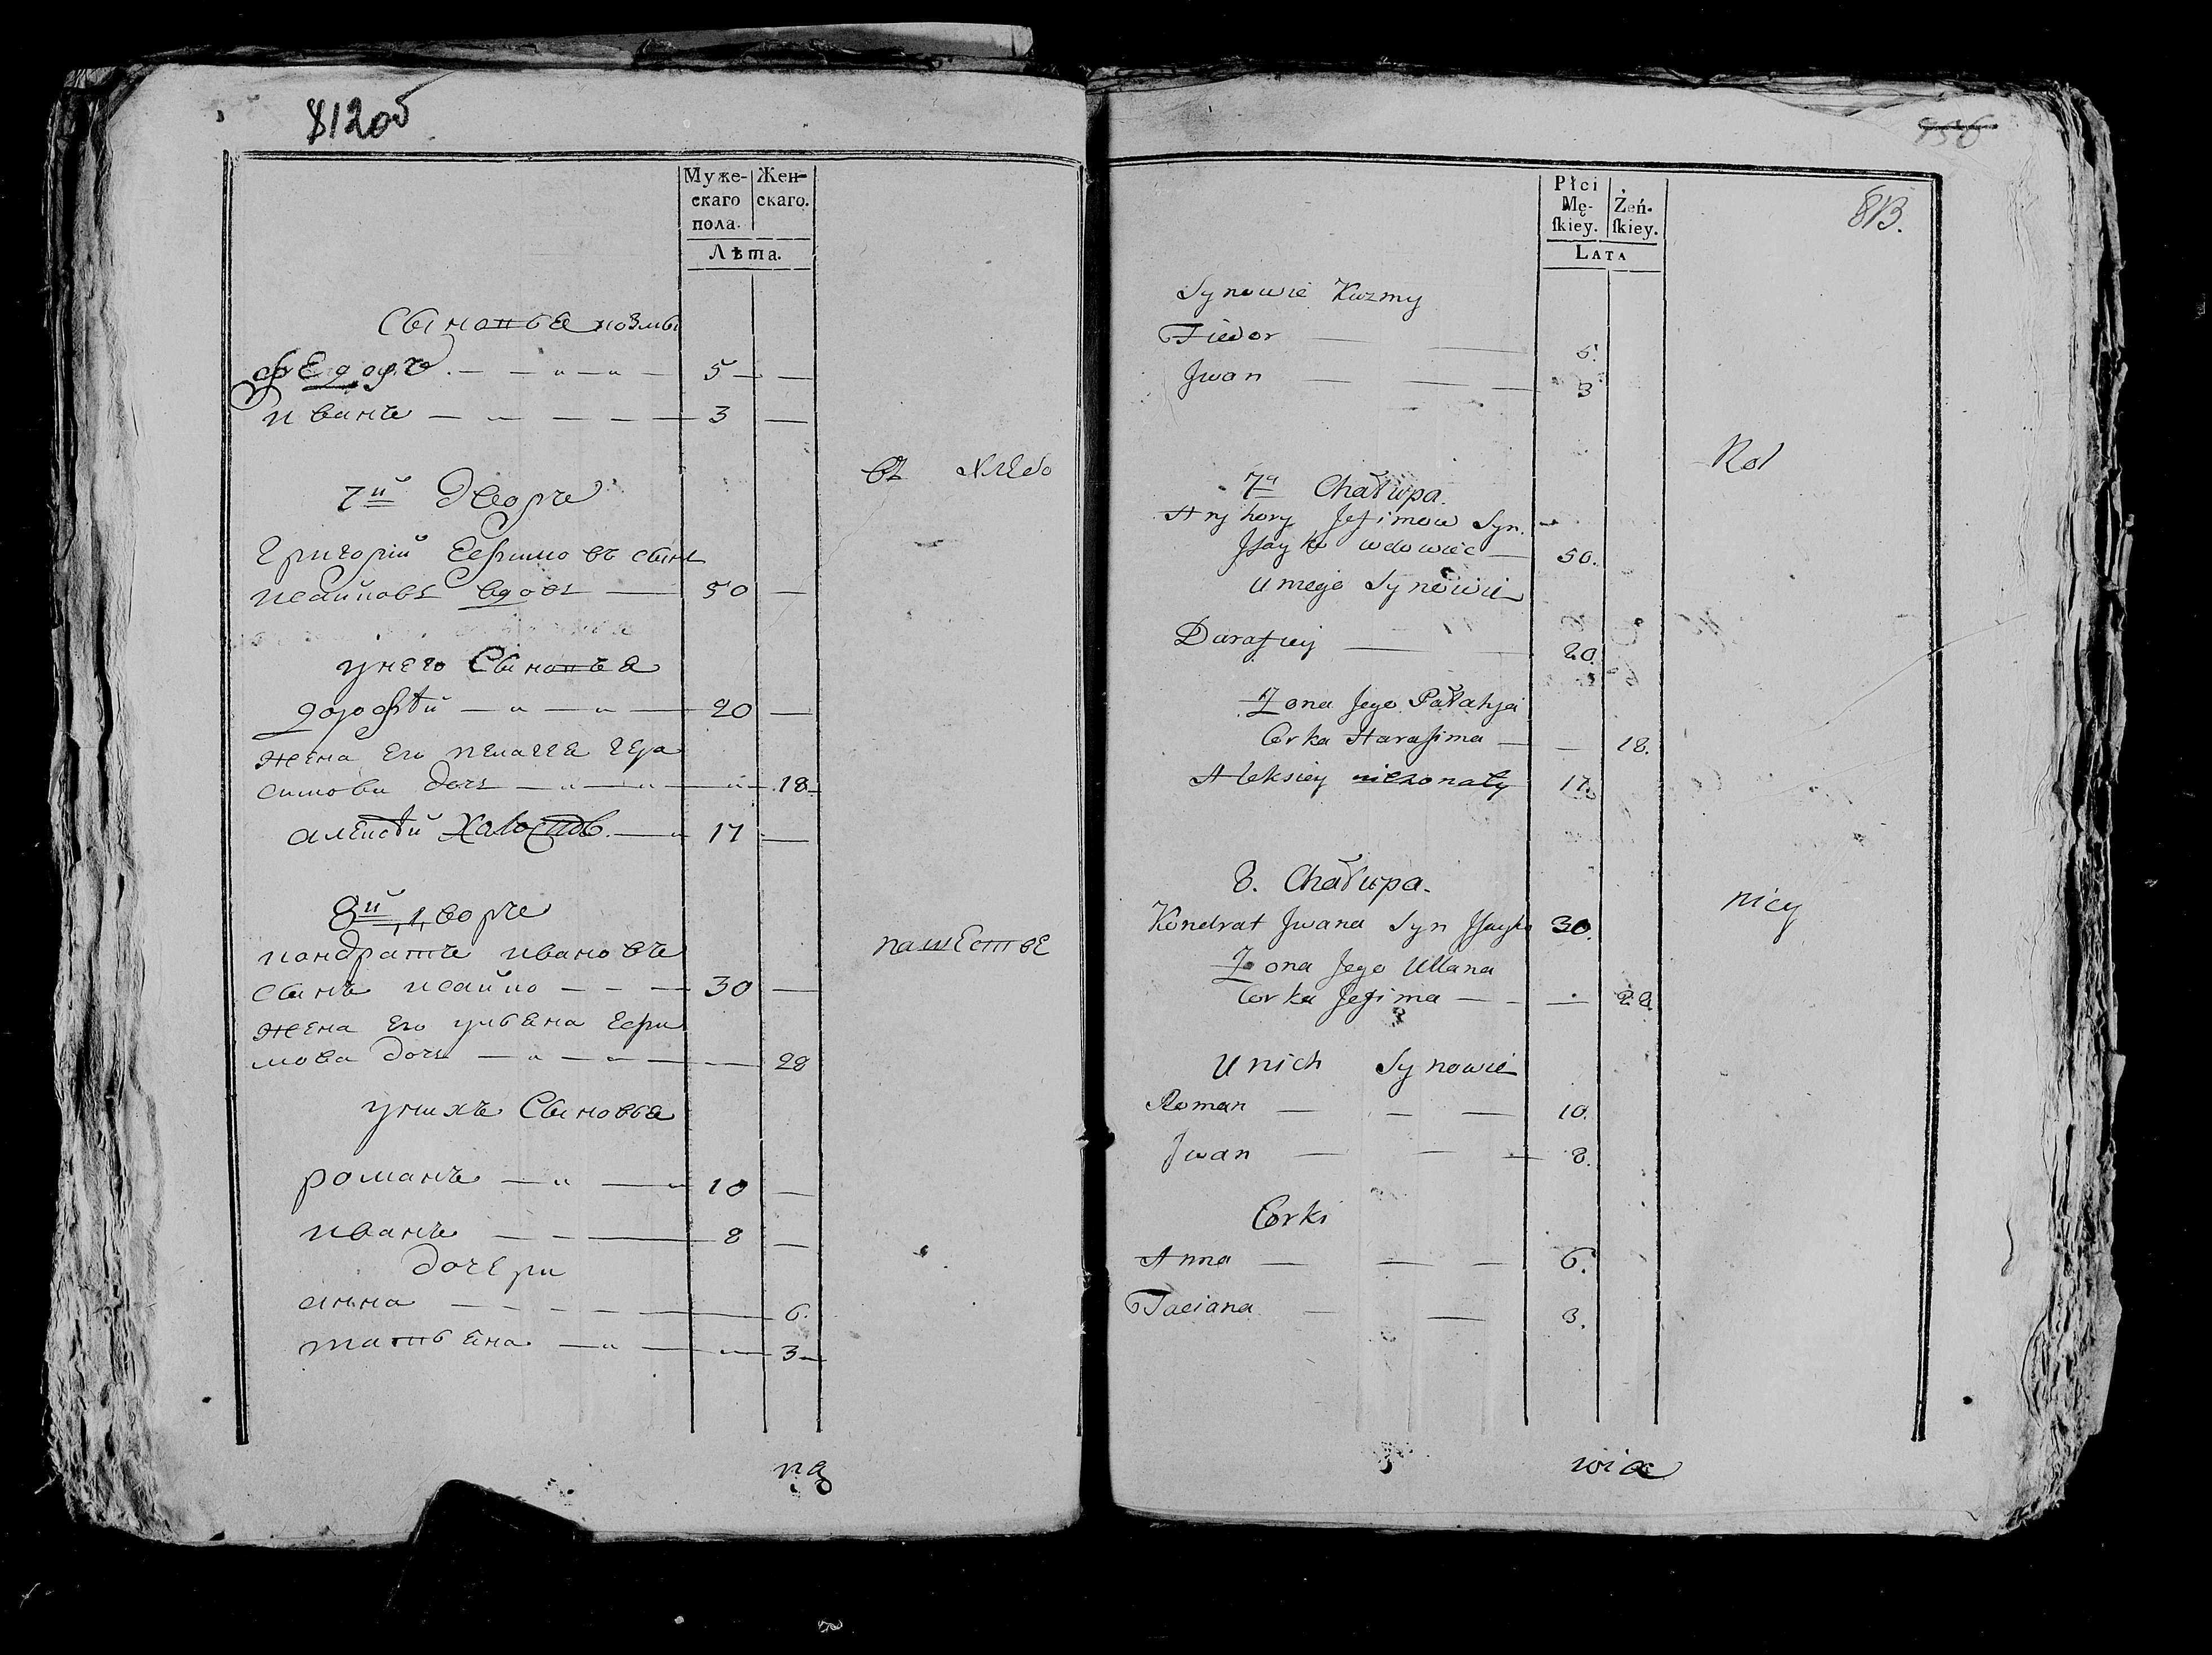 812об
Муже-
скаго
пола.
Жен-
скаго.
Лѣта.
Сыновья козмы
Федоръ 5
иванъ 3
въ хлебо
7й дворъ
Григорий Ефимовъ сынъ
исайковъ вдовъ 50
у него Сыновья
дорофѣй 20
жена его пелагея гера
симова дочь 18
алексѣй Холостъ 17
8й дворъ
пашестве
кондратъ ивановъ
сынъ исайко 30
жена его ульяна Ефи
мова дочь 28
у нихъ Сыновья
романъ 10
иванъ 8
дочери
анна 6.
татьяна 3
на
936
813.
Płci
Mę-
ſkiey.
Żeń-
ſkiey.
LATA
Synowie Kuzmy
Fiedor 5.
Jwan 3
Rol
7a Chałupa.
Hryhory Jefimow Syn.
Jsayko wdowiec 50.
u niego Synowie
Darafiey 20.
Zona Jego Pałahja
Corka Harasima 18.
Aleksiey niezonaty 17.
8. Chałupa.
nicy
Kondrat Jwana Syn Jsayko 30.
Zona Jego Ullana
Corka Jefima 28
U nich Synowie
Roman 10.
Jwan 8.
Corki
Anna 6.
Taciana 3.